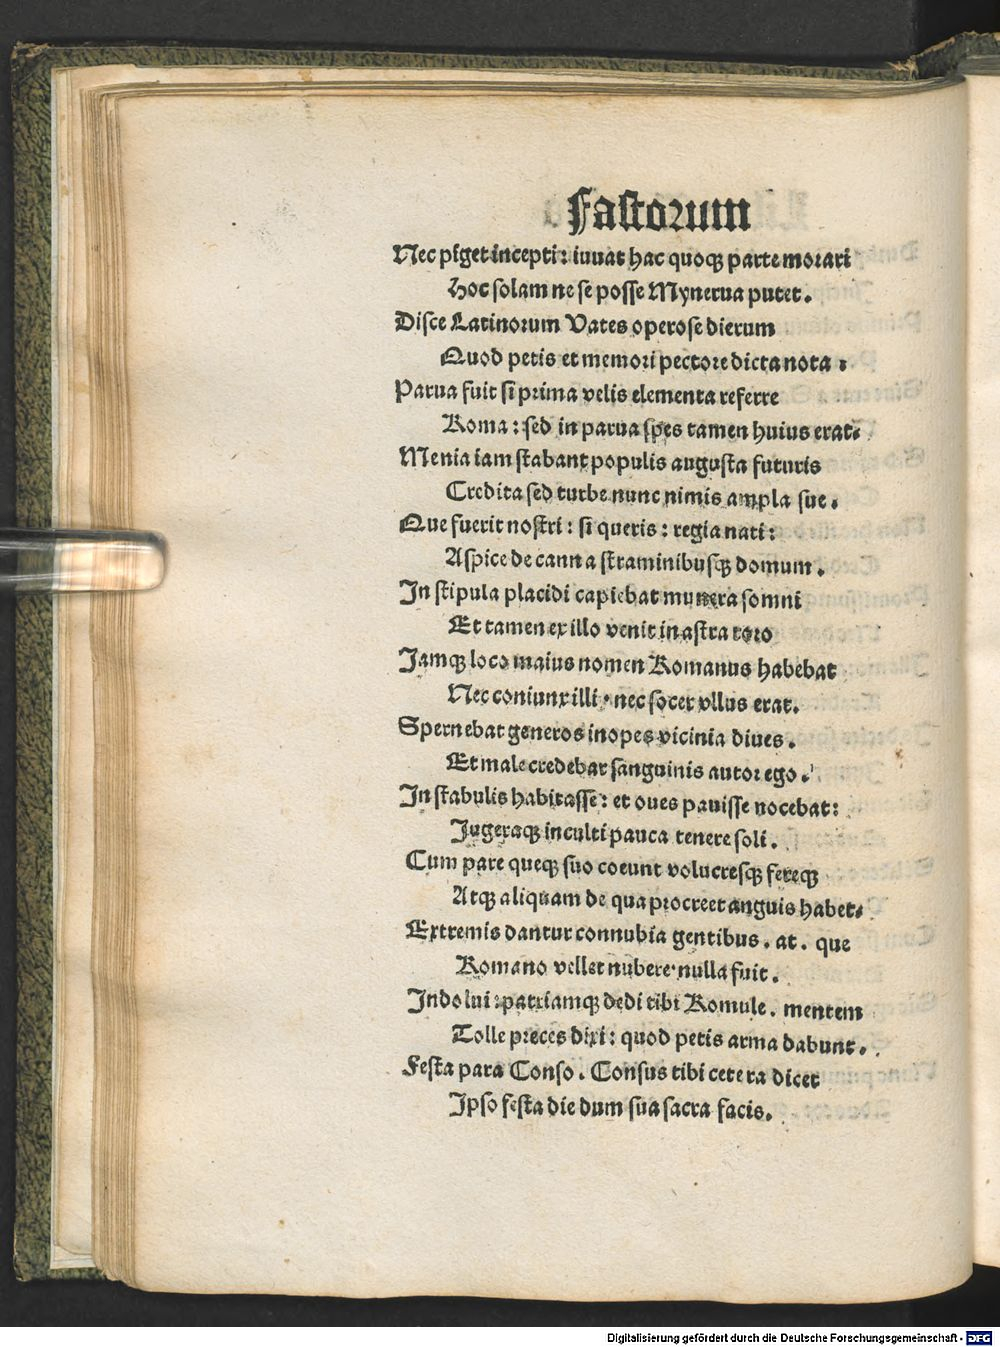 Fastorum
Nec piget incepti: iuuat hac quoqꝫ parte morari
Hoc solam ne se posse Mynerua putet.
Disce Latinorum Vates operose dierum
Quod petis et memori pectore dicta nota.
Parua fuit si prima velis elementa referre
Roma: sed in parua spes tamen huius erat.
Menia iam stabant populis augusta futuris
Credita sed turbe nunc nimis ampla sue.
Que fuerit nostri: si queris: regia nati:
Aspice de canna straminibusqꝫ domum.
In stipula placidi capiebat munera somni
Et tamen ex illo venit in astra toro
Jamqꝫ loco maius nomen Romanus habebat
Nec coniunx illi. nec socer vllus erat.
Spernebat generos inopes vicinia diues.
Et male credebar sanguinis autor ego.
In stabulis habitasse: et oues pauisse nocebat:
Jugeraqꝫ inculti pauca tenere soli.
Cum pare queqꝫ suo coeunt volucresqꝫ fereqꝫ
Atqꝫ aliquam de qua procreet anguis habet.
Extremis dantur connubia gentibus. at. que
Romano vellet nubere nulla fuit.
Indolui: patriamqꝫ dedi tibi Romule. mentem
Tolle preces dixi: quod petis arma dabunt.
Festa para Conso. Consus tibi cetera dicet
Ipso festa die dum sua sacra facis.
Digitalisierung gefördert durch die Deutsche Forschungsgemeinschaft - DFG